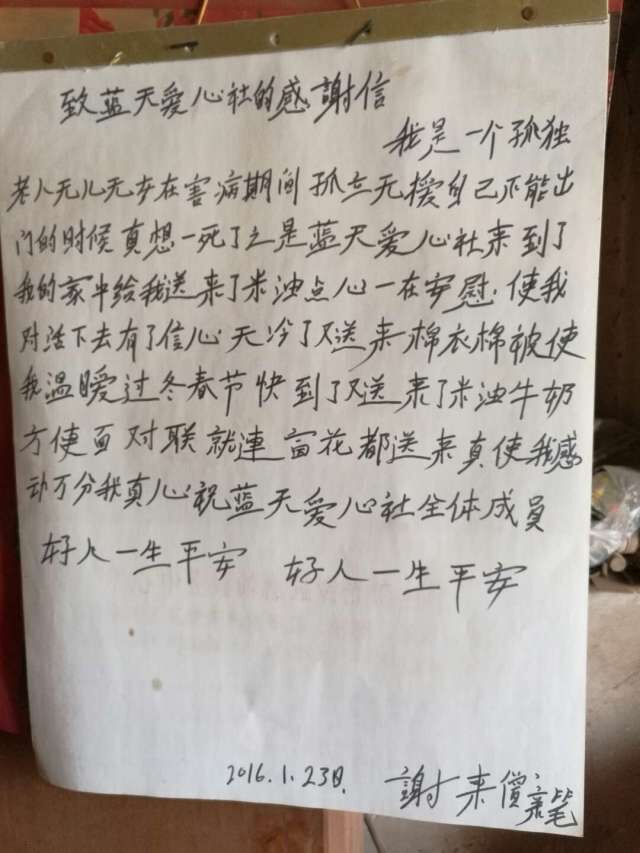 致蓝天爱心社的感謝信
我是一个孤独
老人无儿无女在害病期间孤立无援自己不能出
门的时候真想一死了之是蓝天爱心社来到了
我的家中给我送来了米油点心一在安慰使我
对活下去有了信心天冷了又送来棉衣棉被使
我温暖过冬春节快到了又送来了米油牛奶
方便面对联就連窗花都送来真使我感
动万分我真心祝蓝天爱心社全体成员
好人一生平安 好人一生平安
2016.1.23日. 謝来價亲笔